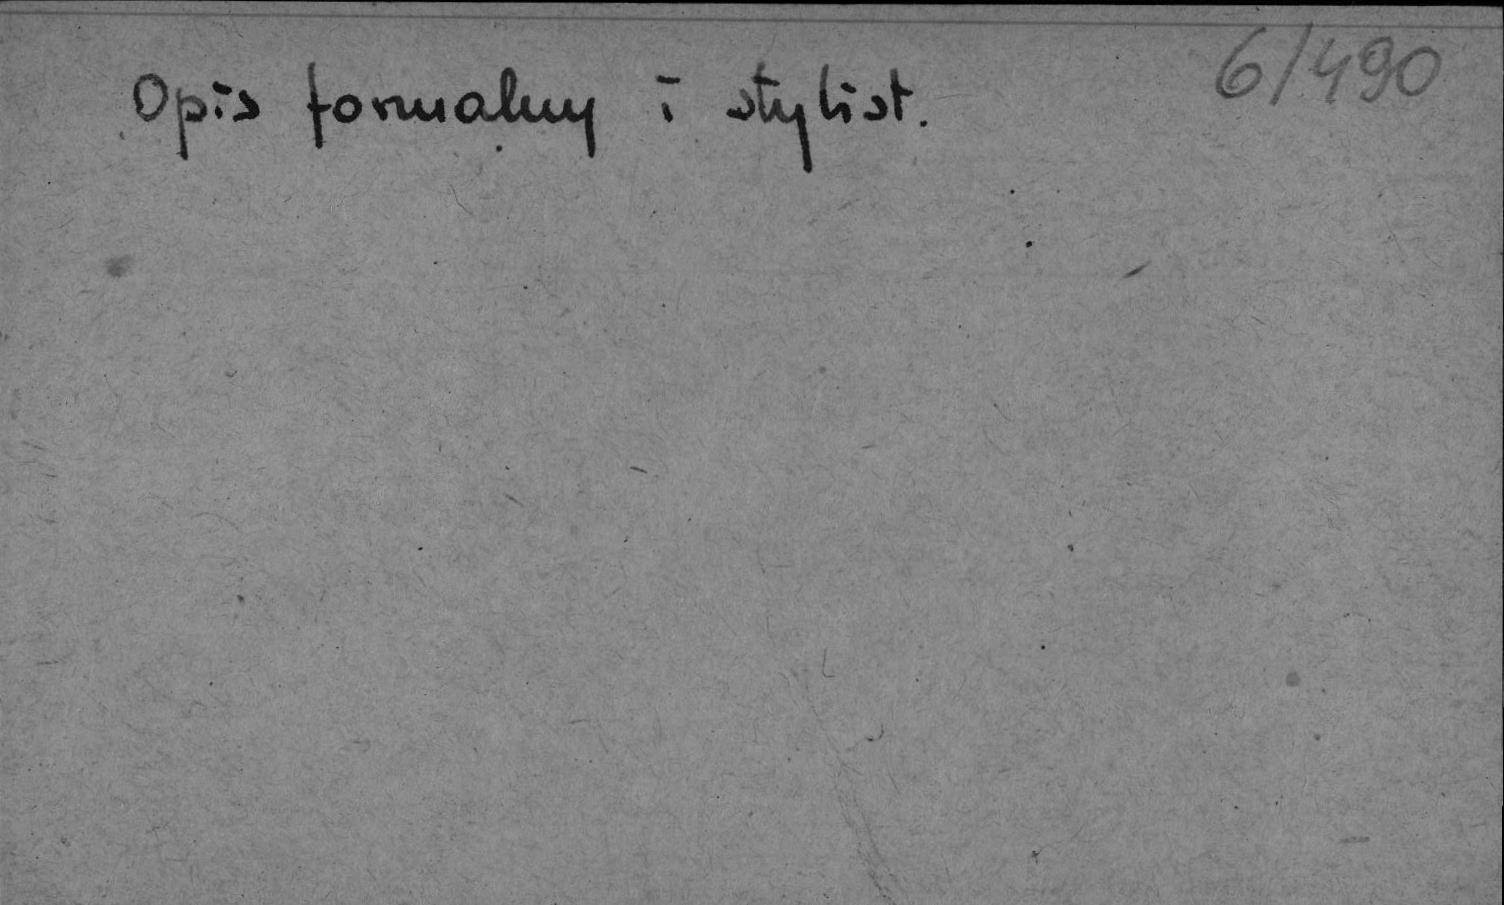 6/490
Opis formalny i stylist.